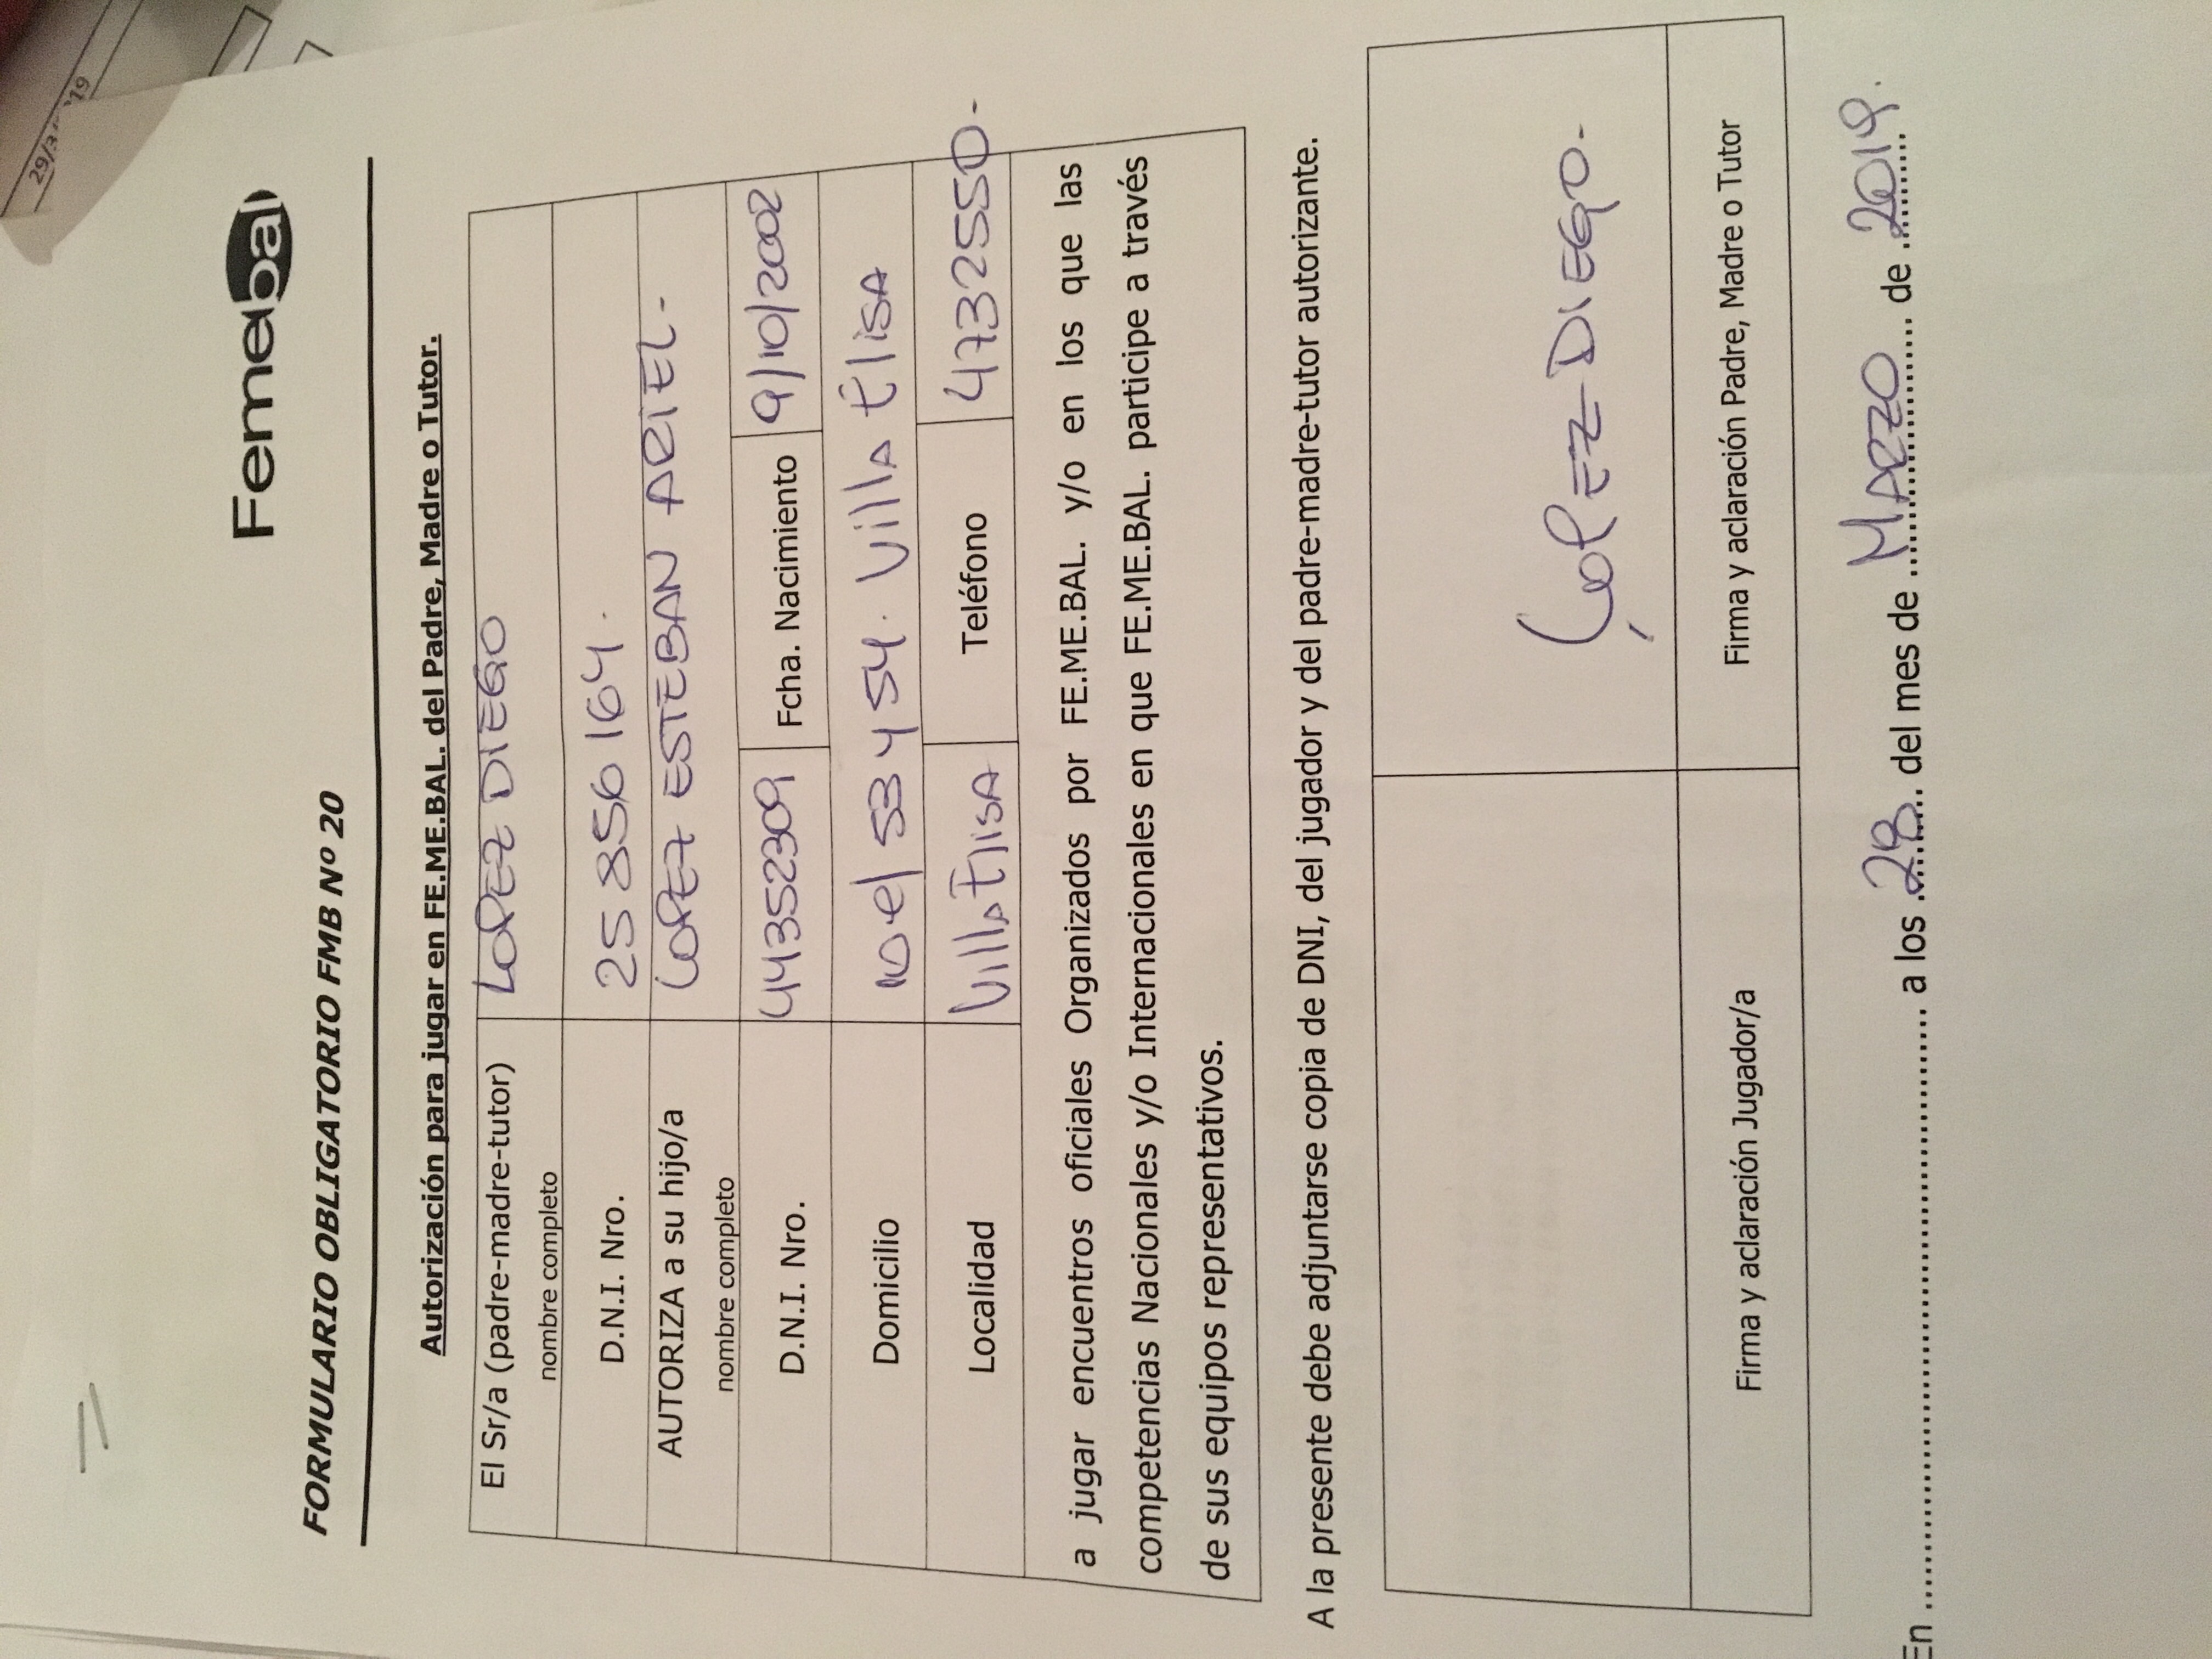 29/3
'19
Femebal
FORMULARIO OBLIGATORIO FMB Nº 20
Autorización para jugar en FE.ME.BAL. del Padre, Madre o Tutor.
El Sr/a (padre-madre-tutor) LOPEZ DIEGO
nombre completo
D.N.I. Nro. 25 856 164.
AUTORIZA a su hijo/a LOPEZ ESTEBAN ARIEL-
nombre completo
D.N.I. Nro. 44352309 Fcha. Nacimiento 9/10/2002
Domicilio 10 e/ 53 y 54. Villa Elisa
Localidad Villa Elisa Teléfono 4732550-
a jugar encuentros oficiales Organizados por FE.ME.BAL. y/o en los que las
competencias Nacionales y/o Internacionales en que FE.ME.BAL. participe a través
de sus equipos representativos.
A la presente debe adjuntarse copia de DNI, del jugador y del padre-madre-tutor autorizante.
LOPEZ DIEGO.-
Firma y aclaración Jugador/a Firma y aclaración Padre, Madre o Tutor
En .................... a los 28 del mes de MARZO de 2019.